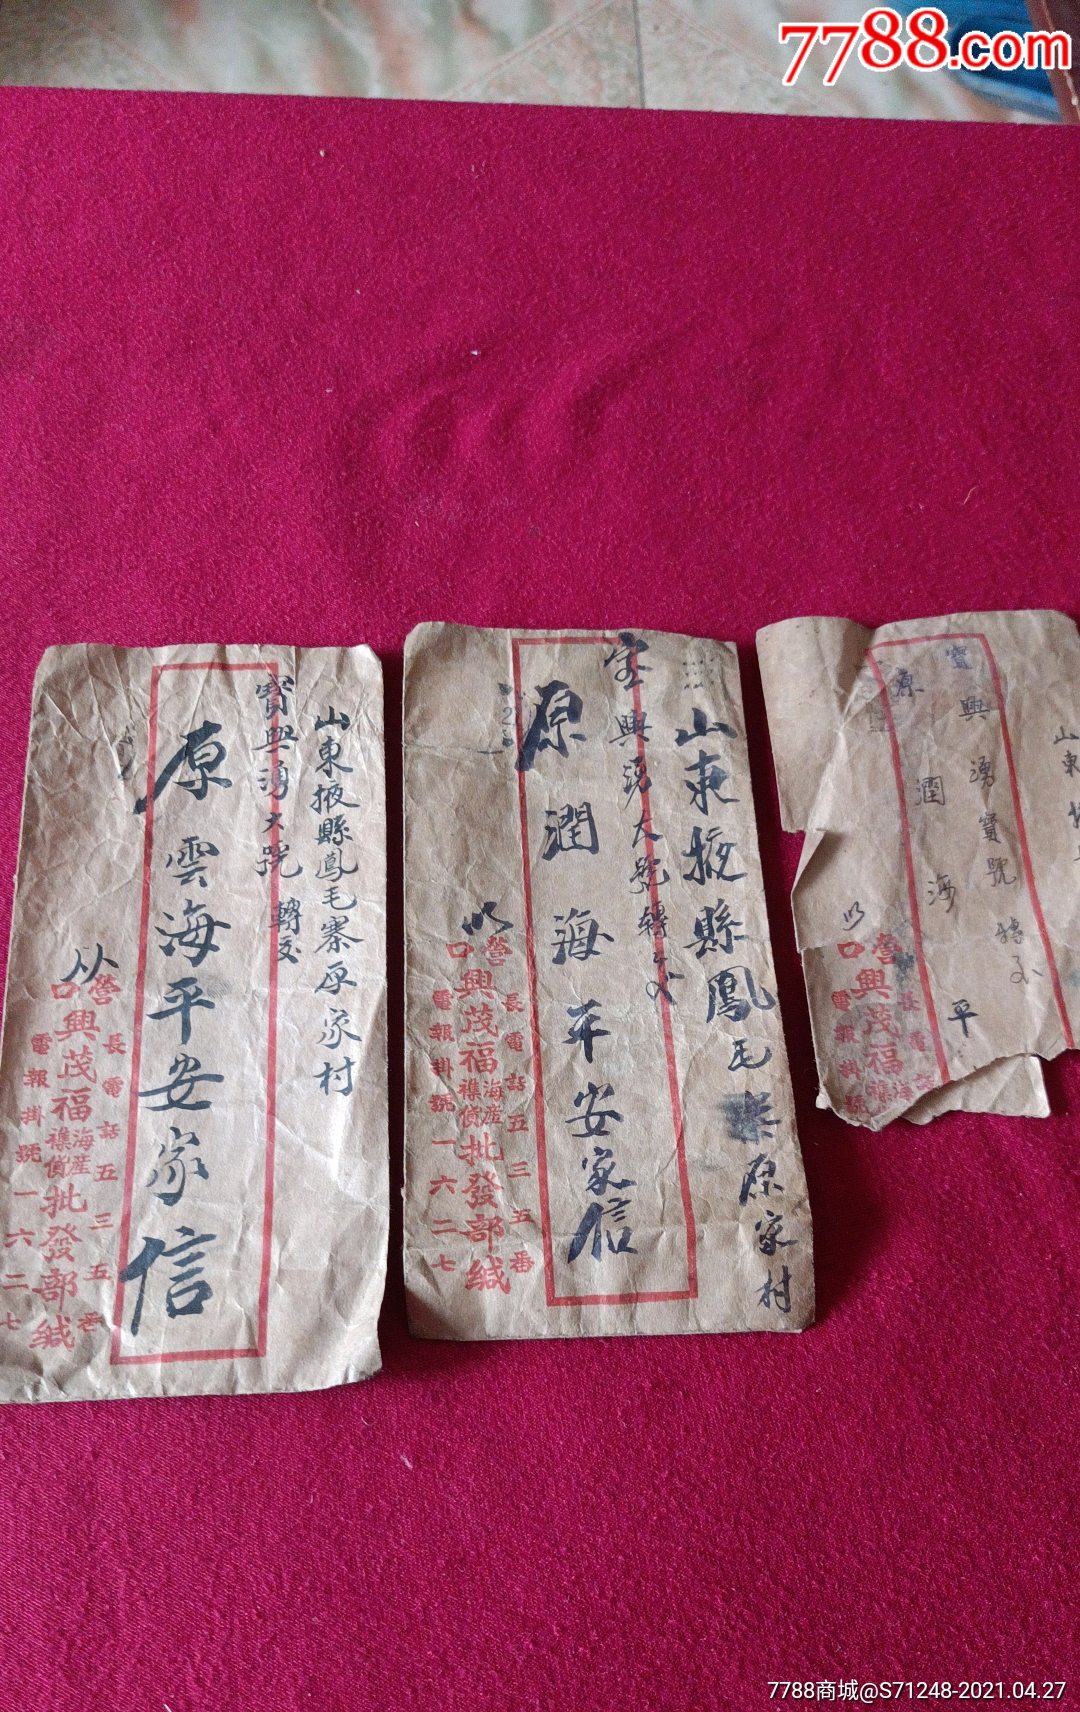 7788.com
山東掖縣鳳毛寨原家村
寶興湧大號 轉交
原雲海平安家信
營口興茂福海産襍貨批發部緘
長電話五三五番
電報掛號一六二七
山東掖縣鳳毛寨原家村
宝興湧大號轉交
原潤海平安家信
營口興茂福海産襍貨批發部緘
長電話五三五番
電報掛號一六二七
山東掖
寶興湧寶號轉交
原潤海平
營口興茂福海襍
長電話
電報掛號
7788商城@S71248-2021.04.27